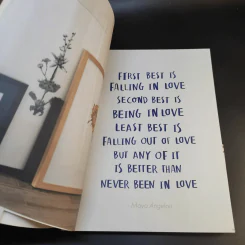 FIRST BEST IS
FALLING IN LOVE
SECOND BEST IS
BEING IN LOVE
LEAST BEST IS
FALLING OUT OF LOVE
BUT ANY OF IT
IS BETTER THAN
NEVER BEEN IN LOVE